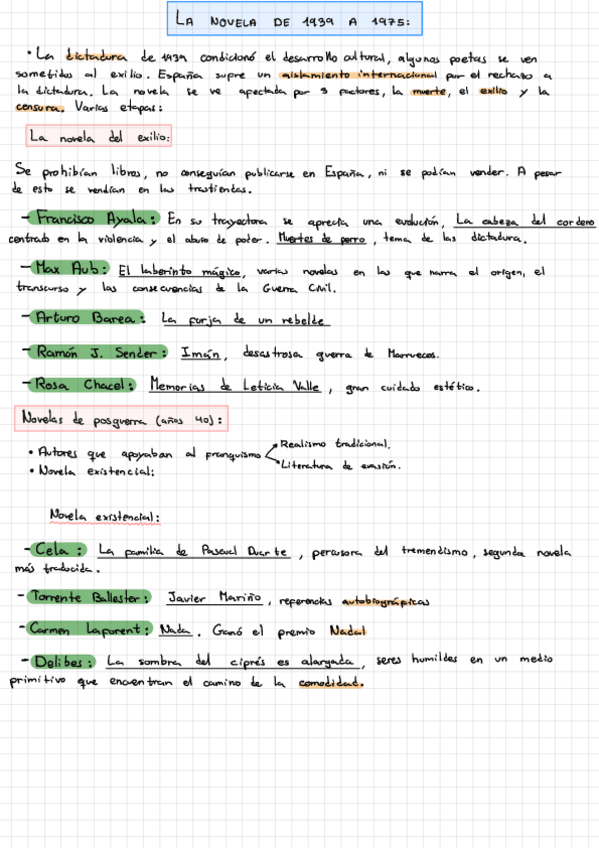 LA NOVELA DE 1939 A 1975:
• La dictadura de 1939 condicionó el desarrollo cultural, algunos poetas se ven
sometidos al exilio. España supre un aislamiento internacional por el rechazo a
la dictadura. La novela se ve apectada por 3 pactores, la muerte, el exilio y la
censura. Varias etapas:
La novela del exilio:
Se prohibían libros, no conseguían publicarse en España, ni se podían vender. A pesar
de esto se vendían en las trastiendas.
- Francisco Ayala: En su trayectora se aprecia una evolución, La cabeza del cordero
centrado en la violencia y el abuso de poder. Muertes de perro, tema de las dictadura.
- Max Aub: El laberinto mágico, varias novelas en las que narra el origen, el
transcurso y las consecuencias de la Guerra Civil.
- Arturo Barea: La porja de un rebelde
- Ramón J. Sender: Imán, desastrosa guerra de Marruecos.
- Rosa Chacel: Memorias de Leticia Valle, gran cuidado estético.
Novelas de posguerra (años 40):
• Autores que apoyaban al pranquismo
Realismo tradicional.
Literatura de evasión.
• Novela existencial:
Novela existencial:
- Cela: La pamilia de Pascual Duarte, percusora del tremendismo, segunda novela
más traducida.
- Torrente Ballester: Javier Mariño, reperencias autobiográpicas
- Carmen Laporent: Nada. Ganó el premio Nadal
- Delibes: La sombra del ciprés es alargada, seres humildes en un medio
primitivo que encuentran el camino de la comodidad.